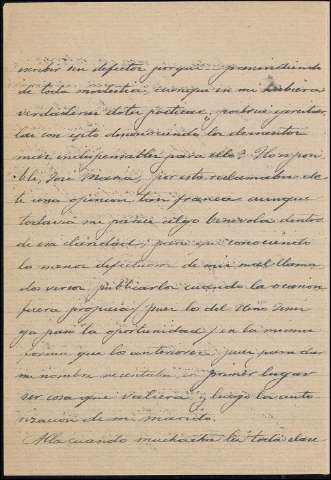 escribir sin defectos porque prescindiendo
de toda modestia aunque en mi hubiera
verdaderas dotes poeticas, podria ejercitar
las con exito desconociendo los elementos
mas indispensables para ello? Imposi
ble, José Maria, por esto reclamaba de
ti una opinion tan franca aunque
todavia mi parece algo benévola dentro
de esa claridad, para que conociendo
lo menos defectuoso de mis mal llama
dos versos publicarlos cuando la ocasion
fuera propicia (pues los del Niño Jesus
ya pasó la oportunidad) en la misma
forma que los anteriores, pues para dar
mi nombre necesitaba en primer lugar
ser cosa que valiera y luego la auto
rización de mi marido.
Alla cuando muchacha leí toda clase